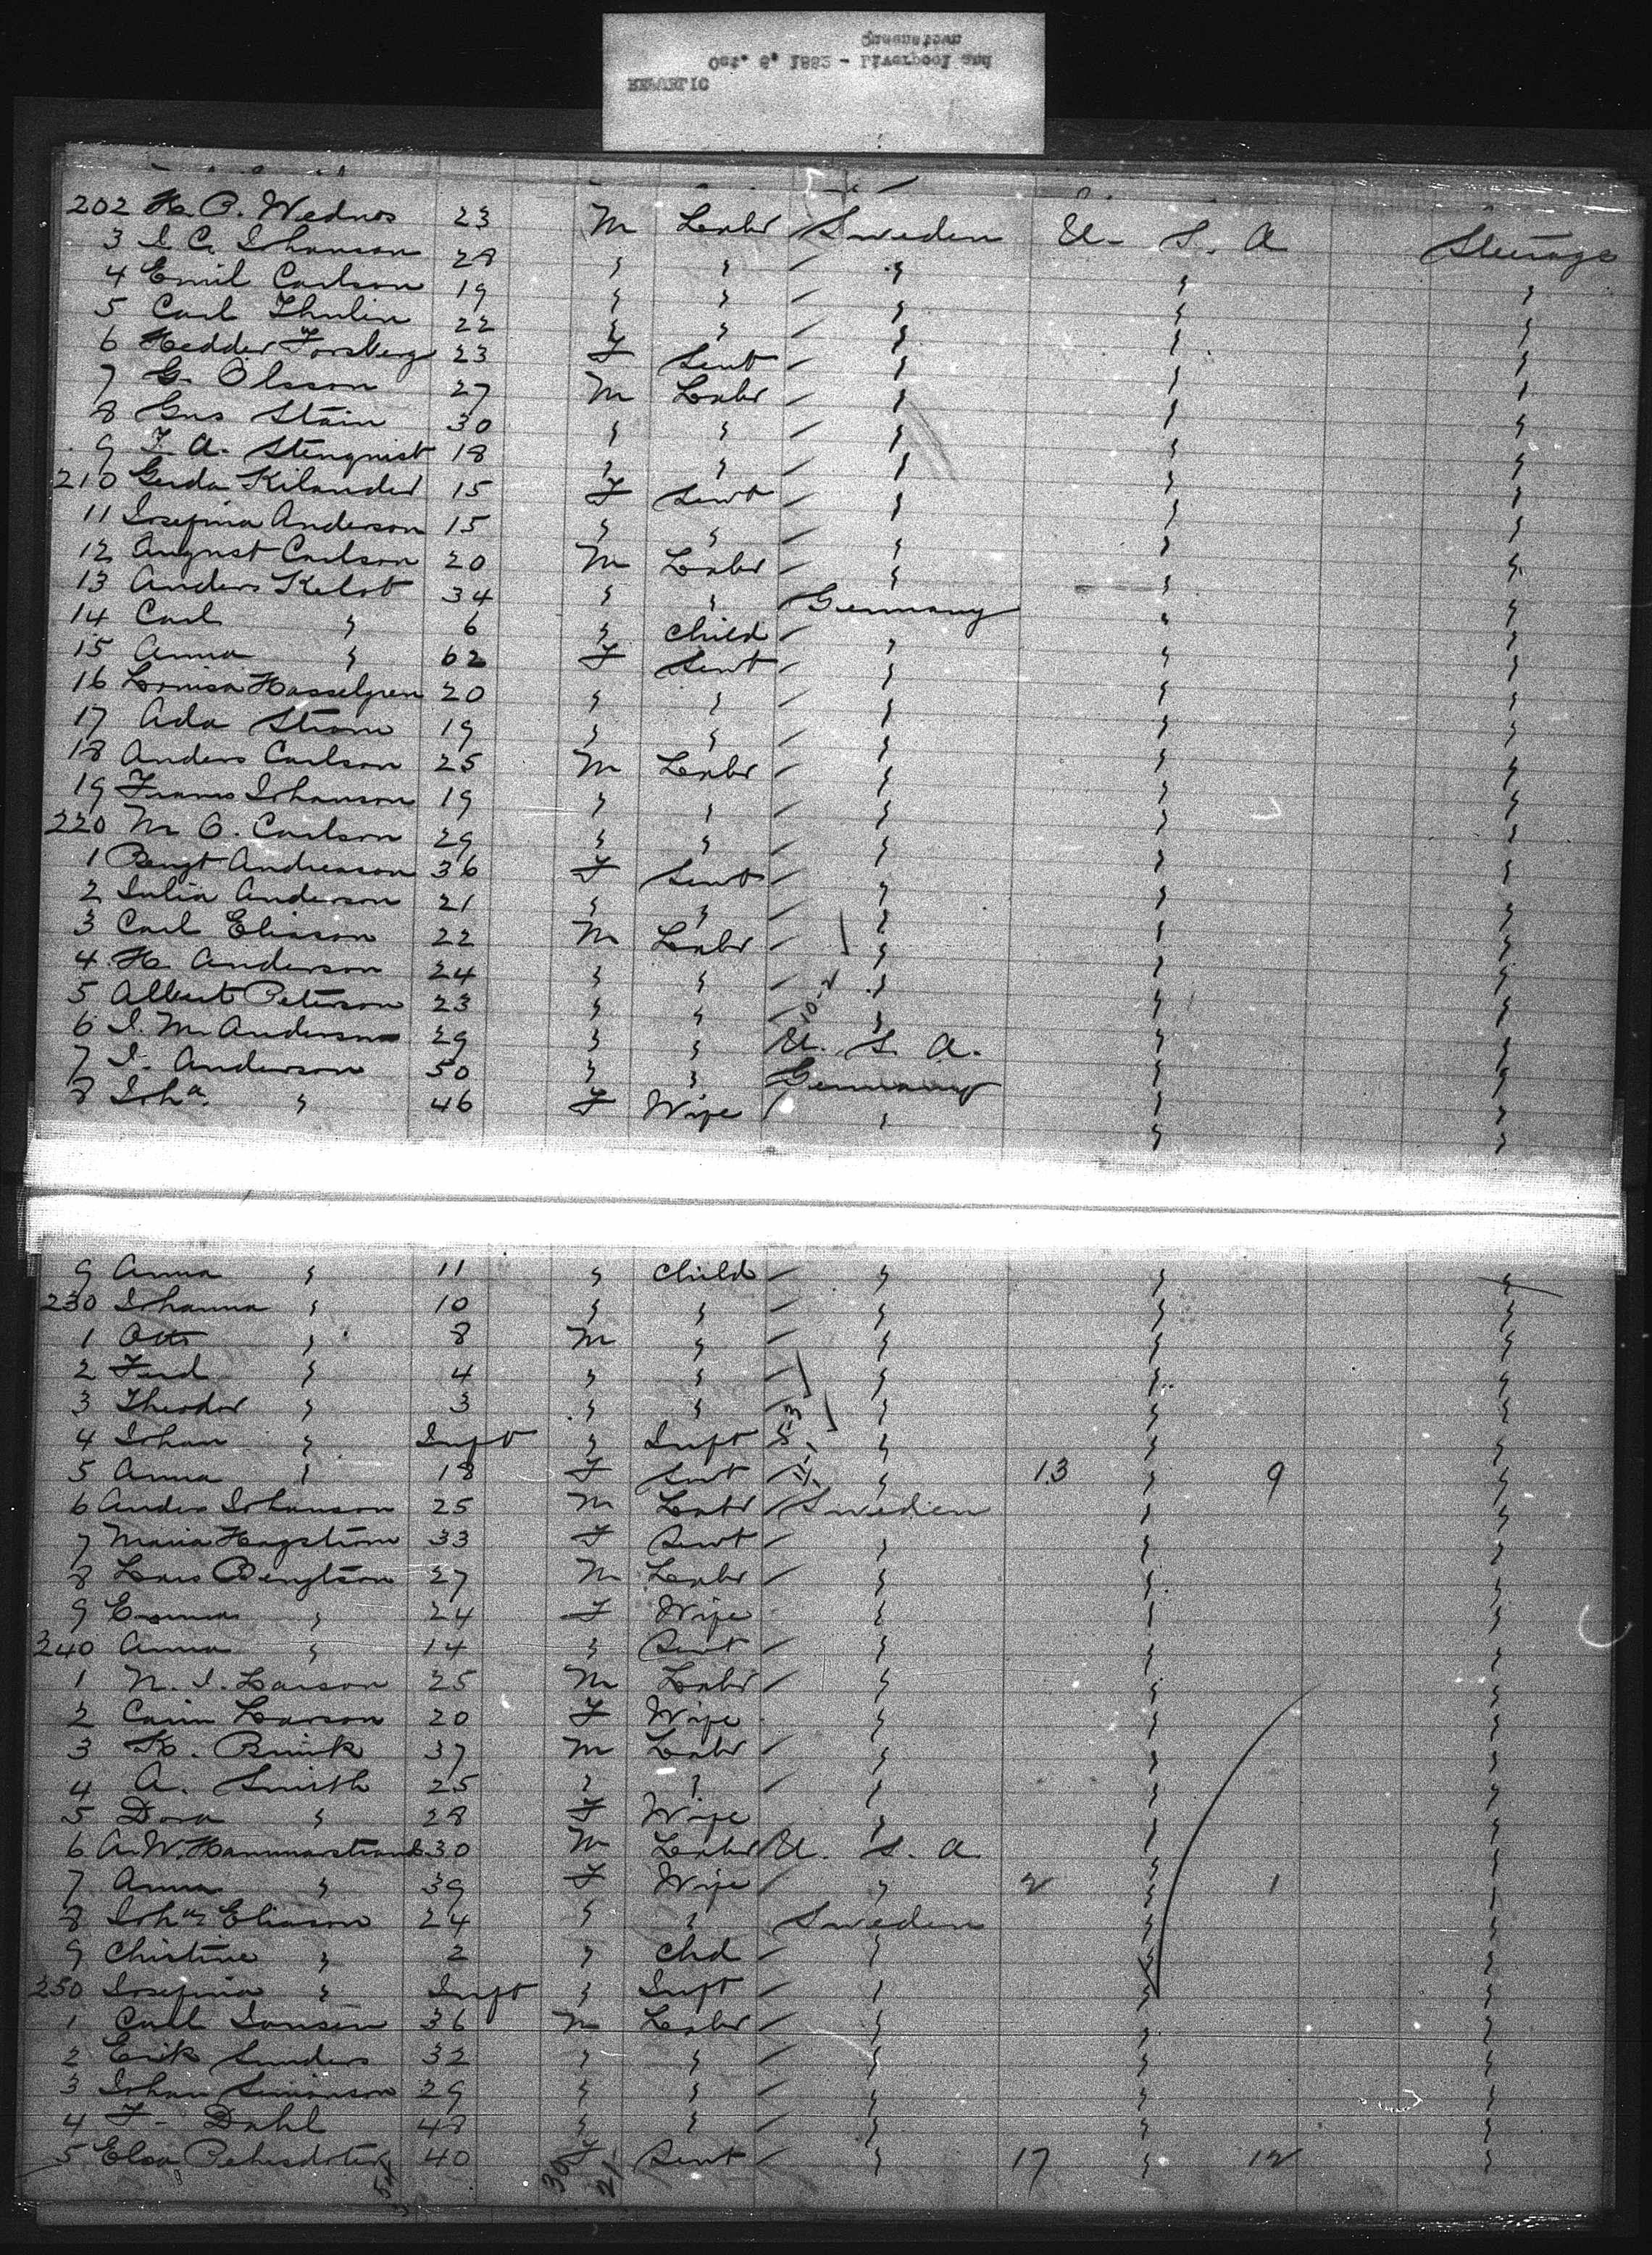 REPUBLIC
Oct. 6, 1882 - Liverpool and
Queenstown
202 H. P. Wednos 23 M Labr / Sweden U. S. A Steerage
3 I C. Ihanson 28 " " / " " "
4 Emil Carlson 19 " " / " " "
5 Carl Thulin 22 " " / " " "
6 Hedder Forsberg 23 F Sevt / " " "
7 G. Olsson 27 M Labr / " " "
8 Gus Stain 30 " " / " " "
9 F. A. Stenquist 18 " " / " " "
210 Gerda Kilander 15 F Sevt / " " "
11 Josefina Anderson 15 " " / " " "
12 August Carlson 20 M Labr / " " "
13 Anders Kelst 34 " " Germany " "
14 Carl " 6 " Child / " " "
15 Anna " 62 F Sevt / " " "
16 Lovisa Hasselgren 20 " " / " " "
17 Ada Strom 19 " " / " " "
18 Anders Carlson 25 M Labr / " " "
19 Frans Johanson 19 " " / " " "
220 M O. Carlson 29 " " / " " "
1 Bengt Andreason 36 F Sevt / " " "
2 Julia Anderson 21 " " / " " "
3 Carl Eliason 22 M Labr / " " "
4 H. Anderson 24 " " / " " "
5 Albert Peterson 23 " " " " "
6 J. M. Anderson 29 " " U. S. A. " "
7 J. Anderson 50 " " Germany " "
8 Joha. " 46 F Wife / " " "
9 Anna " 11 " Child / " " "
230 Johanna " 10 " " / " " "
1 Otto " 8 M " / " " "
2 Ferd " 4 " " / " " "
3 Theodor " 3 " " / " " "
4 Johan " Inft " Inft " " "
5 Anna " 18 F Sevt / " 13 " 9 "
6 Anders Johanson 25 M Labr / Sweden " "
7 Maria Hagstrom 33 F Sevt / " " "
8 Lars Bengtson 27 M Labr / " " "
9 Emma " 24 F Wife " " "
240 Anna " 14 " Sevt / " " "
1 N. J. Larson 25 M Labr / " " "
2 Carin Larson 20 F Wife " " "
3 K. Brink 37 M Labr / " " "
4 A. Smith 25 " " / " " "
5 Dora " 28 F Wife " " "
6 A. W. Hammarstrand 30 M Labr U. S. A " "
7 Anna " 39 F Wife / " 2 " 1 "
8 Joha. Eliason 24 " " Sweden " "
9 Christine " 2 " Chd / " " "
250 Josefina " Inft " Inft / " " "
1 Carl Jansen 36 M Labr / " " "
2 Erik Sunders 32 " " / " " "
3 Johan Simonson 29 " " / " " "
4 F. Dahl 48 " " / " " "
5 Elsa Pehrsdoter 40 F Sevt / " 17 " 12 "
30 21